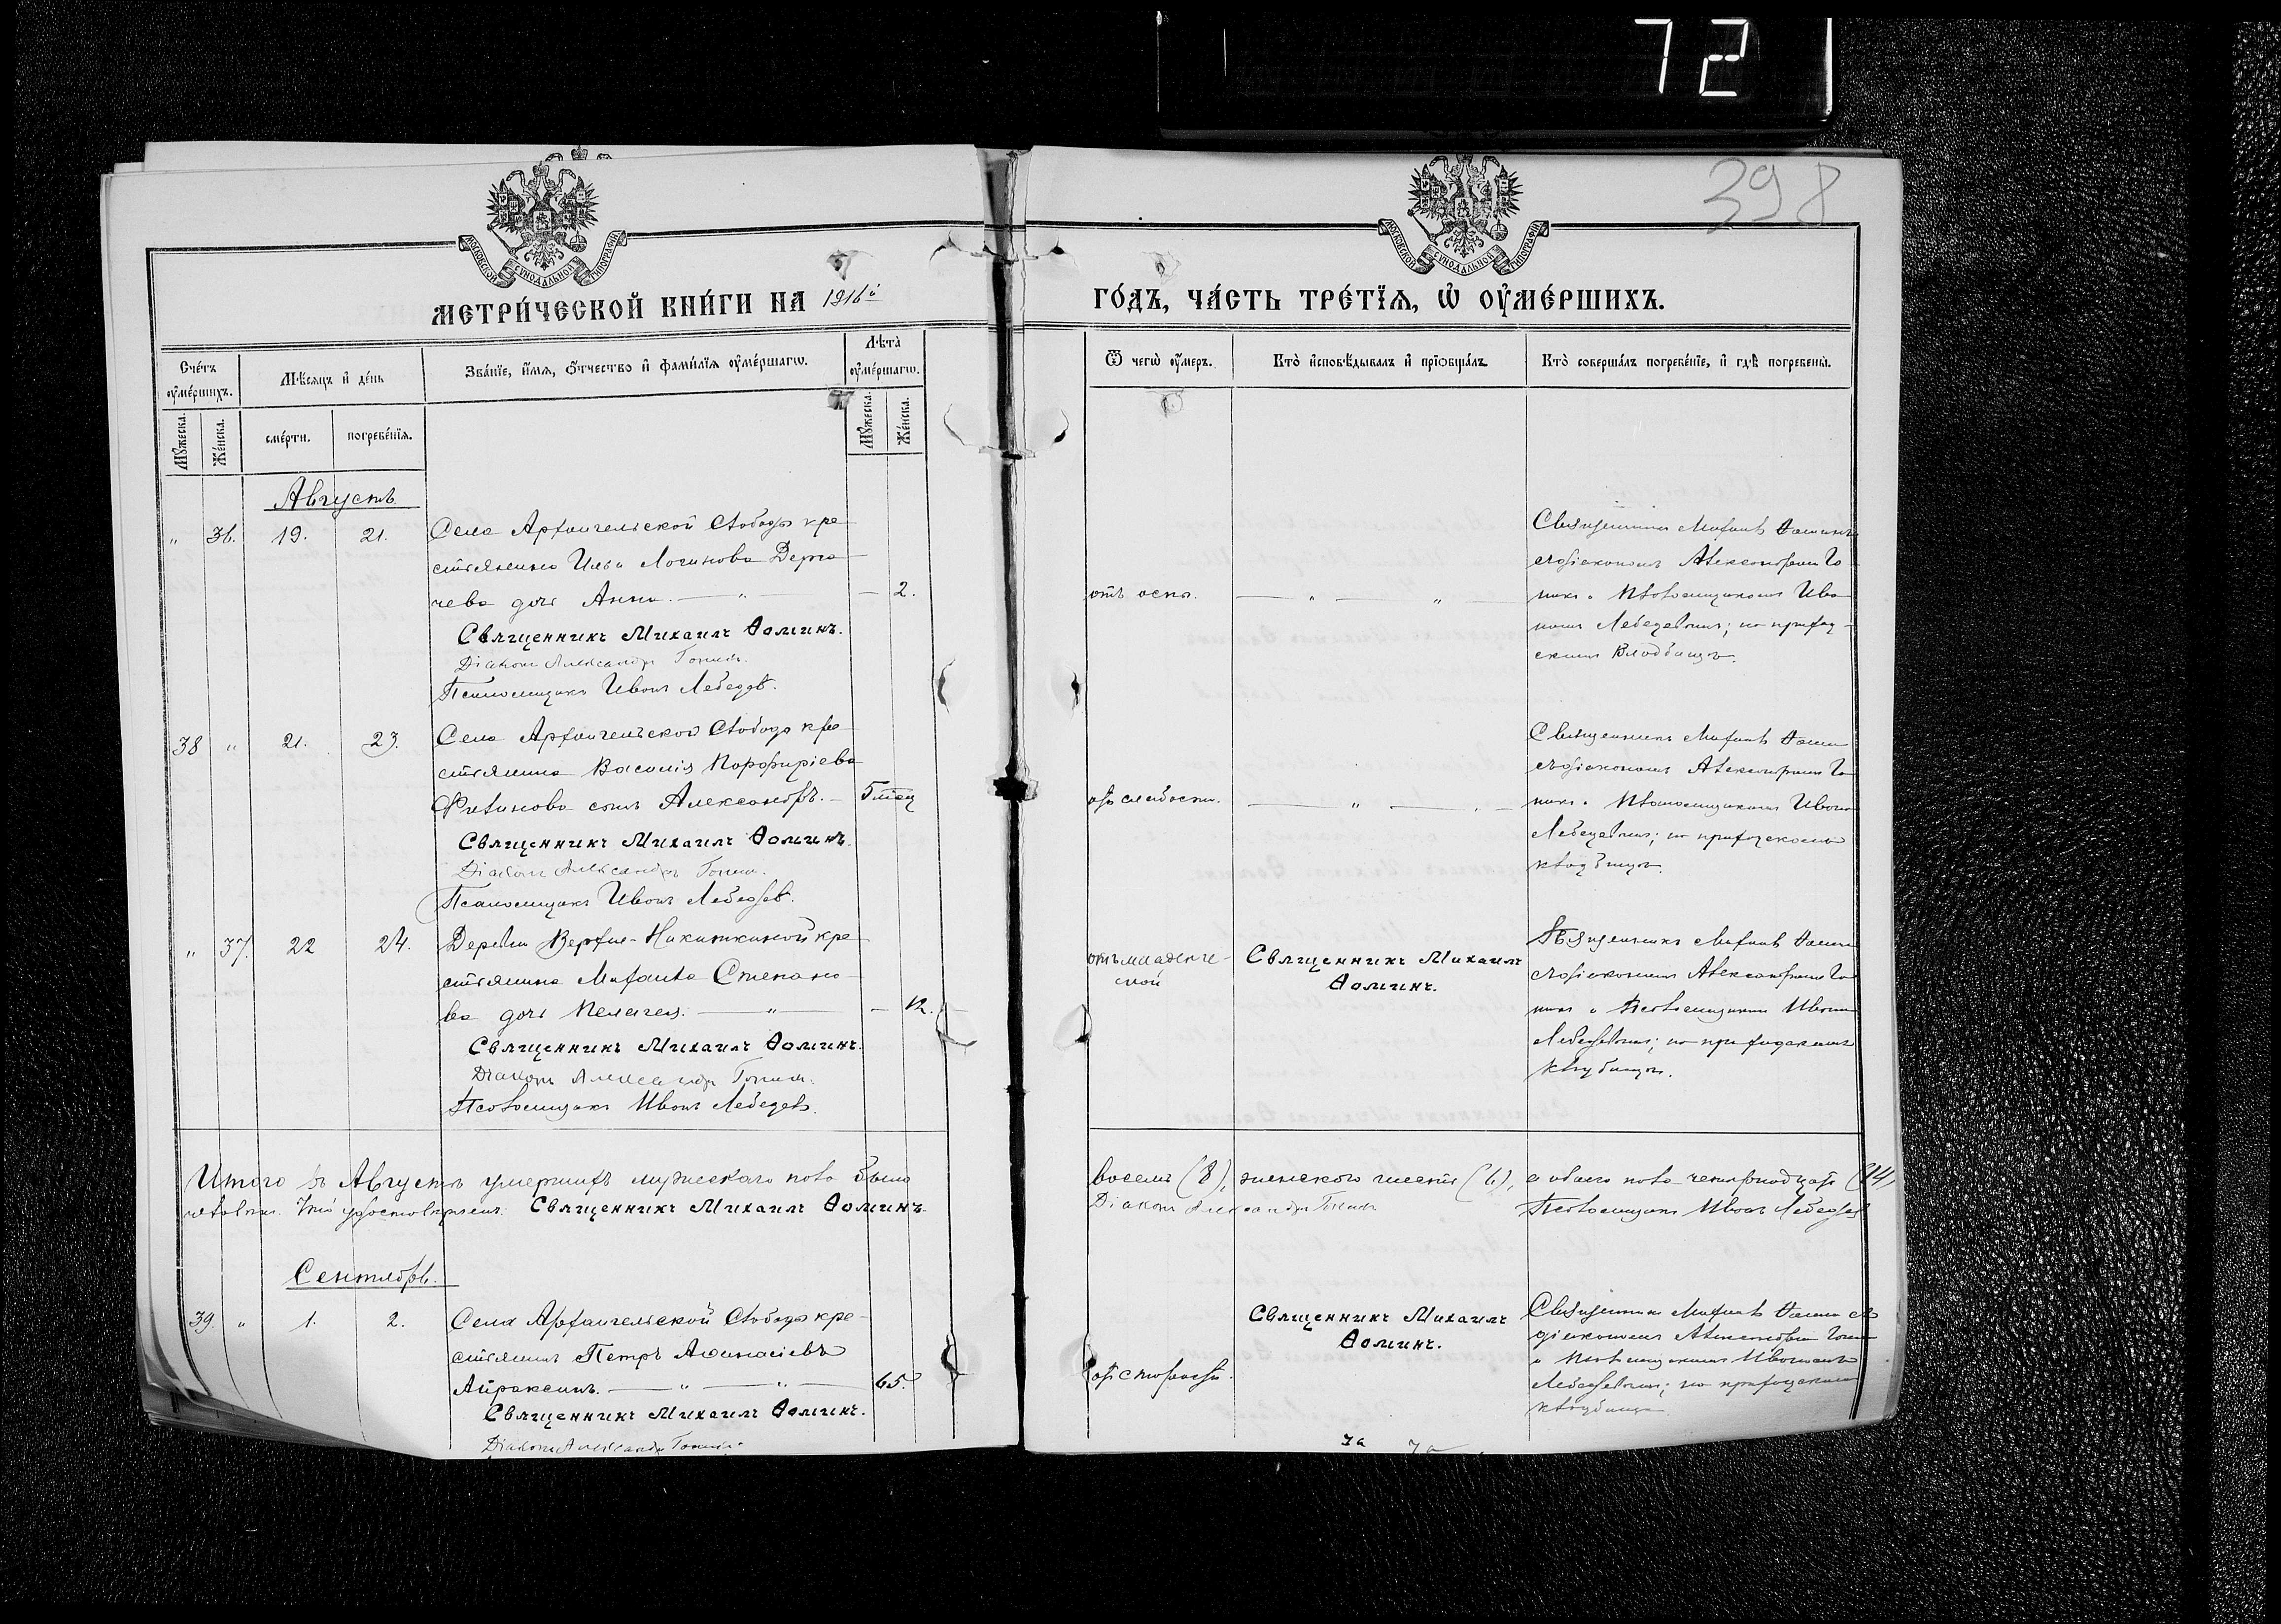 72
398
МОСКОВСКОЙ СѴНОДАЛЬНОЙ ТИПОГРАФІИ
МОСКОВСКОЙ СѴНОДАЛЬНОЙ ТИПОГРАФІИ
МЕТРИ́ЧЕСКОЙ КНИ́ГИ НА 1916й
ГО́ДЪ, ЧА́СТЬ ТРЕ́ТЇѦ, Ѡ҆ ОУ҆МЕ́РШИХЪ.
Сче́тъ оу҆ме́ршихъ.
Мѣ́сяцъ и҆ де́нь
Зва́нїе, и҆́мѧ, ѻ҆́тчество и҆ фами́лїѧ оу҆ме́ршагѡ.
Лѣ́та оу҆ме́ршагѡ.
Ѿ чегѡ̀ оу҆́меръ.
Кто̀ и҆сповѣ́дывалъ и҆ прїѡбща́лъ
Кто̀ соверша́лъ погребе́нїе, и҆ гдѣ̀ погребены̀.
Мꙋ́жеска.
Же́нска.
сме́рти.
погребе́нїѧ.
Мꙋ́жеска.
Же́нска.
Августъ
" 36. 19. 21. Села Архангельской Слободы кре-
стьянина Ильи Логинова Дерга-
чева дочь Анна. — " — — 2.
Священникъ Михаилъ Ѳоминъ.
Діаконъ Александръ Гонинъ.
Псаломщикъ Иванъ Лебедевъ.
отъ оспы. — " — " —
Священникъ Михаилъ Ѳоминъ
съ діакономъ Александромъ Го-
нинъ и Псаломщикомъ Ива-
номъ Лебедевымъ; на приход-
скомъ кладбищѣ.
38 " 21. 23. Села Архангельской Слободы кре-
стьянина Василія Порфиріева
Филинова сынъ Александръ. — 5 мѣсц
Священникъ Михаилъ Ѳоминъ.
Діаконъ Александръ Гонинъ.
Псаломщикъ Иванъ Лебедевъ.
отъ слабости. — " —
Священникъ Михаилъ Ѳоминъ
съ діакономъ Александромъ Го-
нинъ и Псаломщикомъ Иваномъ
Лебедевымъ; на приходскомъ
кладбищѣ.
" 37. 22 24. Деревни Верхне-Никиткиной кре-
стьянина Михаила Степано-
ва дочь Пелагея. — " — —
Священникъ Михаилъ Ѳоминъ.
Діаконъ Александръ Гонинъ.
Псаломщикъ Иванъ Лебедевъ.
отъ младенче-
ской
Священникъ Михаилъ
Ѳоминъ.
Священникъ Михаилъ Ѳоминъ
съ діакономъ Александромъ Го-
нинъ и Псаломщикомъ Иваномъ
Лебедевымъ; на приходскомъ
кладбищѣ.
Итого въ Августѣ умершихъ мужескаго пола было восемь (8), женского шесть (6), а обоего пола четырнадцать (14)
человѣкъ. Что удостовѣряемъ: Священникъ Михаилъ Ѳоминъ. Діаконъ Александръ Гонинъ Псаломщикъ Иванъ Лебедевъ
Сентябрь.
39. " 1. 2. Села Архангельской Слободы кре-
стьянинъ Петръ Аѳанасіевъ
Айраксинъ. — " — " — 65.
Священникъ Михаилъ Ѳоминъ.
Діаконъ Александръ Гонинъ.
отъ старости.
Священникъ Михаилъ
Ѳоминъ.
Священникъ Михаилъ Ѳоминъ съ
діакономъ Александромъ Гонинъ
и Псаломщикомъ Иваномъ
Лебедевымъ; на приходскомъ
кладбищѣ